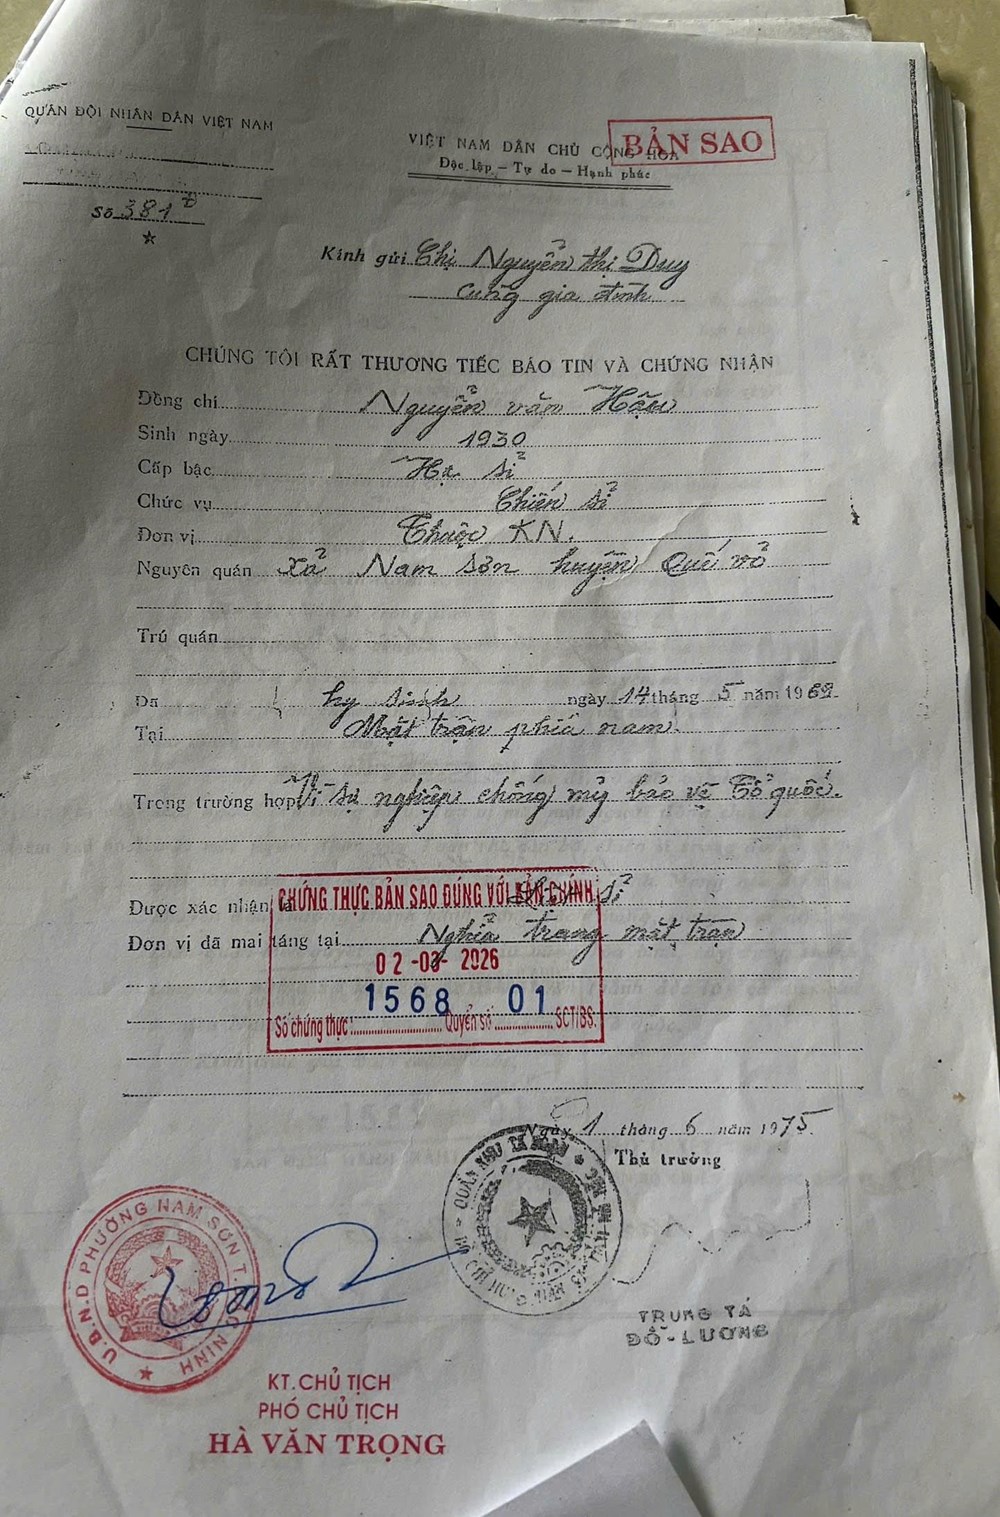 QUÂN ĐỘI NHÂN DÂN VIỆT NAM
Số 381 Đ
VIỆT NAM DÂN CHỦ CỘNG HÒA
BẢN SAO
Độc lập — Tự do — Hạnh phúc
Kính gửi Chị Nguyễn thị Duy
cùng gia đình
CHÚNG TÔI RẤT THƯƠNG TIẾC BÁO TIN VÀ CHỨNG NHẬN
Đồng chí Nguyễn văn Hậu
Sinh ngày 1930
Cấp bậc Hạ sĩ
Chức vụ Chiến sĩ
Đơn vị Thuộc KN.
Nguyên quán Xã Nam Sơn huyện Quế võ
Trú quán
Đã hy sinh ngày 14 tháng 5 năm 1969
Tại Mặt trận phía nam.
Trong trường hợp Vì sự nghiệp chống mỹ bảo vệ Tổ quốc.
CHỨNG THỰC BẢN SAO ĐÚNG VỚI BẢN CHÍNH
Được xác nhận là Liệt sĩ
Đơn vị đã mai táng tại Nghĩa trang mặt trận
02-03-2026
1568 01
Số chứng thực: Quyển số SCT/BS.
Ngày 1 tháng 6 năm 1975
Thủ trưởng
U.B.N.D PHƯỜNG NAM SƠN T. BẮC NINH
TRUNG TÁ
ĐỖ-LƯƠNG
KT. CHỦ TỊCH
PHÓ CHỦ TỊCH
HÀ VĂN TRỌNG